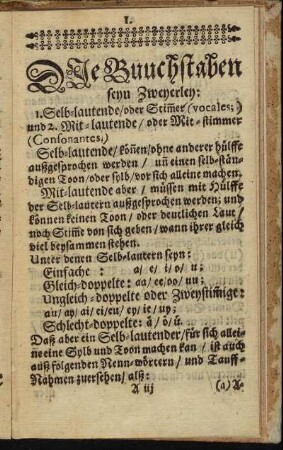 1.
DJe Buuchstaben
seyn Zweyerley:
1. Selb-lautende/ oder Stim̃er (vocales;)
und 2. Mit-lautende / oder Mit-stimmer
(Consonantes.)
Selb-lautende/ kön̄en/ ohne anderer hülffe
außgesprochen werden / uñ einen selb-stän-
digen Toon/ oder sylb/ vor sich alleine machen.
Mit-lautende aber / müssen mit Hülffe
der Selb-lautern außgesprochen werden; und
können keinen Toon / oder deutlichen Laut /
noch Stim̃e von sich geben/ wann ihrer gleich
viel beysammen stehen.
Unter denen Selb-lautern seyn:
Einfache : a/ e/ i/ o/ u;
Gleich-doppelte: aa/ ee/ oo/ uu;
Ungleich-doppelte oder Zweystim̃igt:
au/ ay/ ai/ ei/ eu/ ey/ ie/ uy;
Schlecht-doppelte: ä/ ö/ ü.
Daß aber ein Selb-lautender/ für sich allei-
ne eine Sylb und Toon machen kan / ist auch
auß folgenden Nenn-wörtern / und Tauff-
Nahmen zuersehen/ alß:
A iij (a) A-